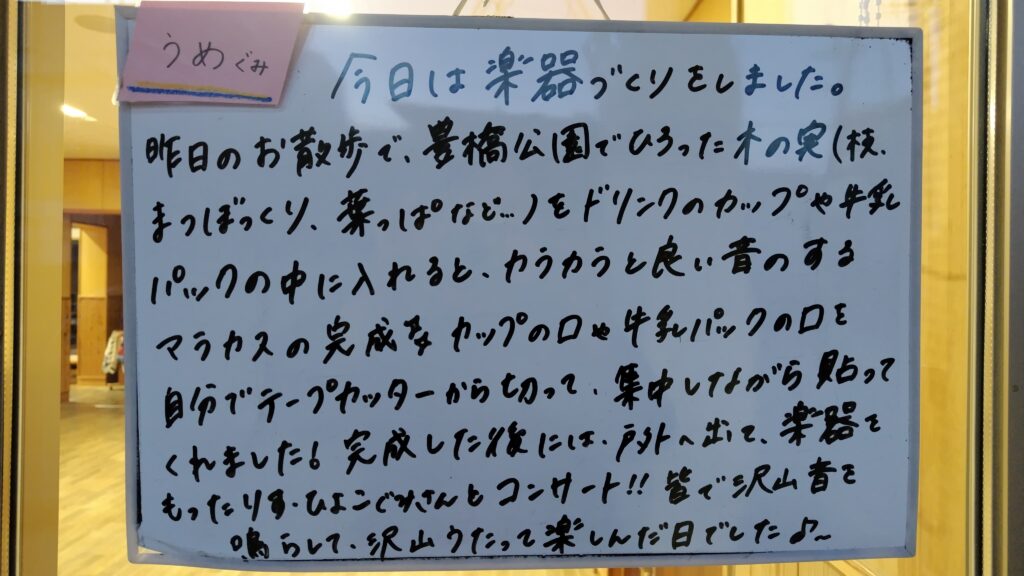 うめぐみ
今日は楽器づくりをしました。
昨日のお散歩で、豊橋公園でひろった木の実(枝、
まつぼっくり、葉っぱなど…)をドリンクのカップや牛乳
パックの中に入れると、カラカラと良い音のする
マラカスの完成 カップの口や牛乳パックの口を
自分でテープカッターから切って、集中しながら貼って
くれました! 完成した後には、戸外へ出て、楽器を
もったりす・ひよこぐみさんとコンサート!! 皆で沢山音を
鳴らして、沢山うたって楽しんだ日でした♪〜